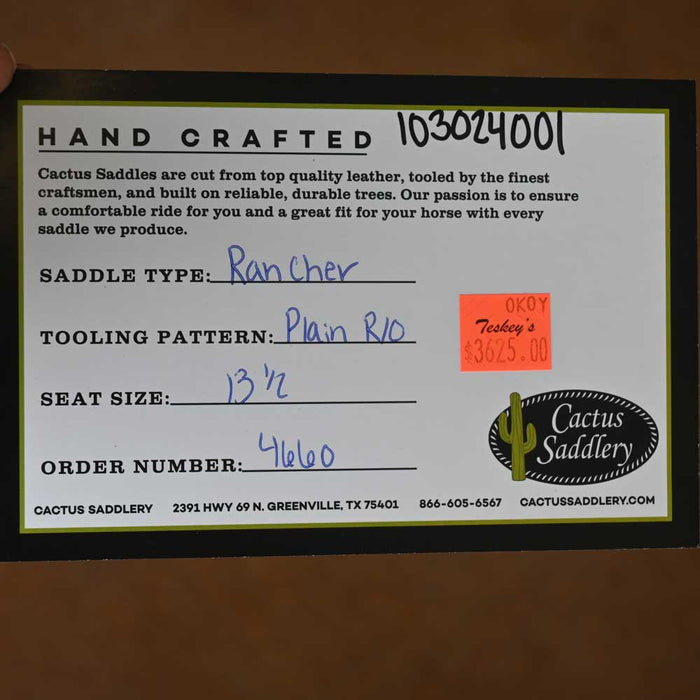 HAND CRAFTED 103024001
Cactus Saddles are cut from top quality leather, tooled by the finest
craftsmen, and built on reliable, durable trees. Our passion is to ensure
a comfortable ride for you and a great fit for your horse with every
saddle we produce.
SADDLE TYPE: Rancher
OKOY
Teskey's
$3625.00
TOOLING PATTERN: Plain R/O
SEAT SIZE: 13 1/2
Cactus
Saddlery
ORDER NUMBER: 4660
CACTUS SADDLERY 2391 HWY 69 N. GREENVILLE, TX 75401 866-605-6567 CACTUSSADDLERY.COM